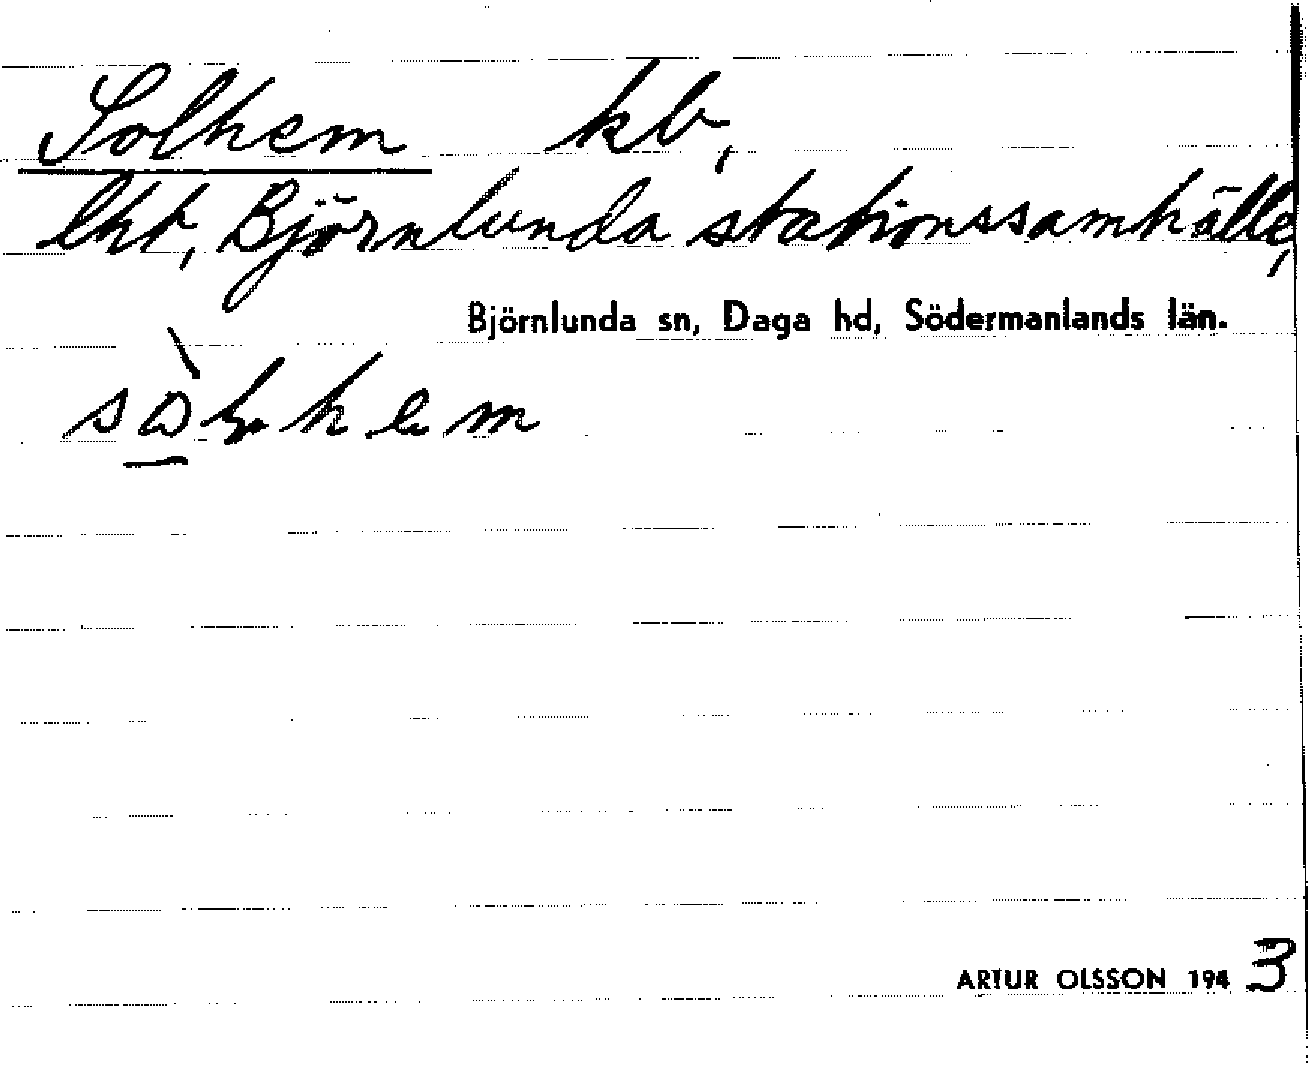 Solhem kb,
lht, Björnlunda stationssamhälle,
Björnlunda sn, Daga hd, Södermanlands län.
ARTUR OLSSON 1943